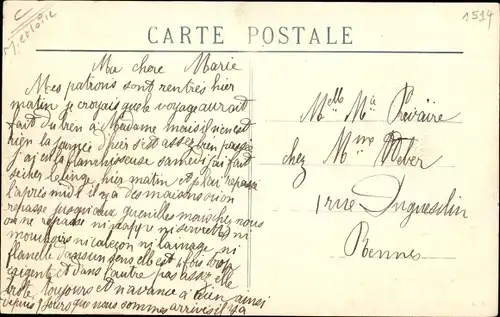 C
M. et Loire
1514
CARTE POSTALE
Ma chere Marie
Mes patrons sont rentrés hier
matin je croyais que le voyage aurait
fait du bien à Madame mais il n'en est
rien la journée d'hier s'est assez bien passée
j'ai eu la blanchisseuse samedi j'ai fait
secher le linge hier matin et je l'ai repassé
l'après midi il y a des maisons où on
repasse jusqu'aux guenilles mais chez nous
on ne repasse ni nappe ni serviettes ni
mouchoirs ni caleçon ni lainage ni
flanelle dans un sens elle est fois trop
exigente et dans l'autre pas assez elle
frote toujours et n'avance à rien ainsi
depuis 9 jours que nous sommes arrivés il y a
Melle Ma Privaire
chez Mme Weber
1 rue Duguesclin
Rennes